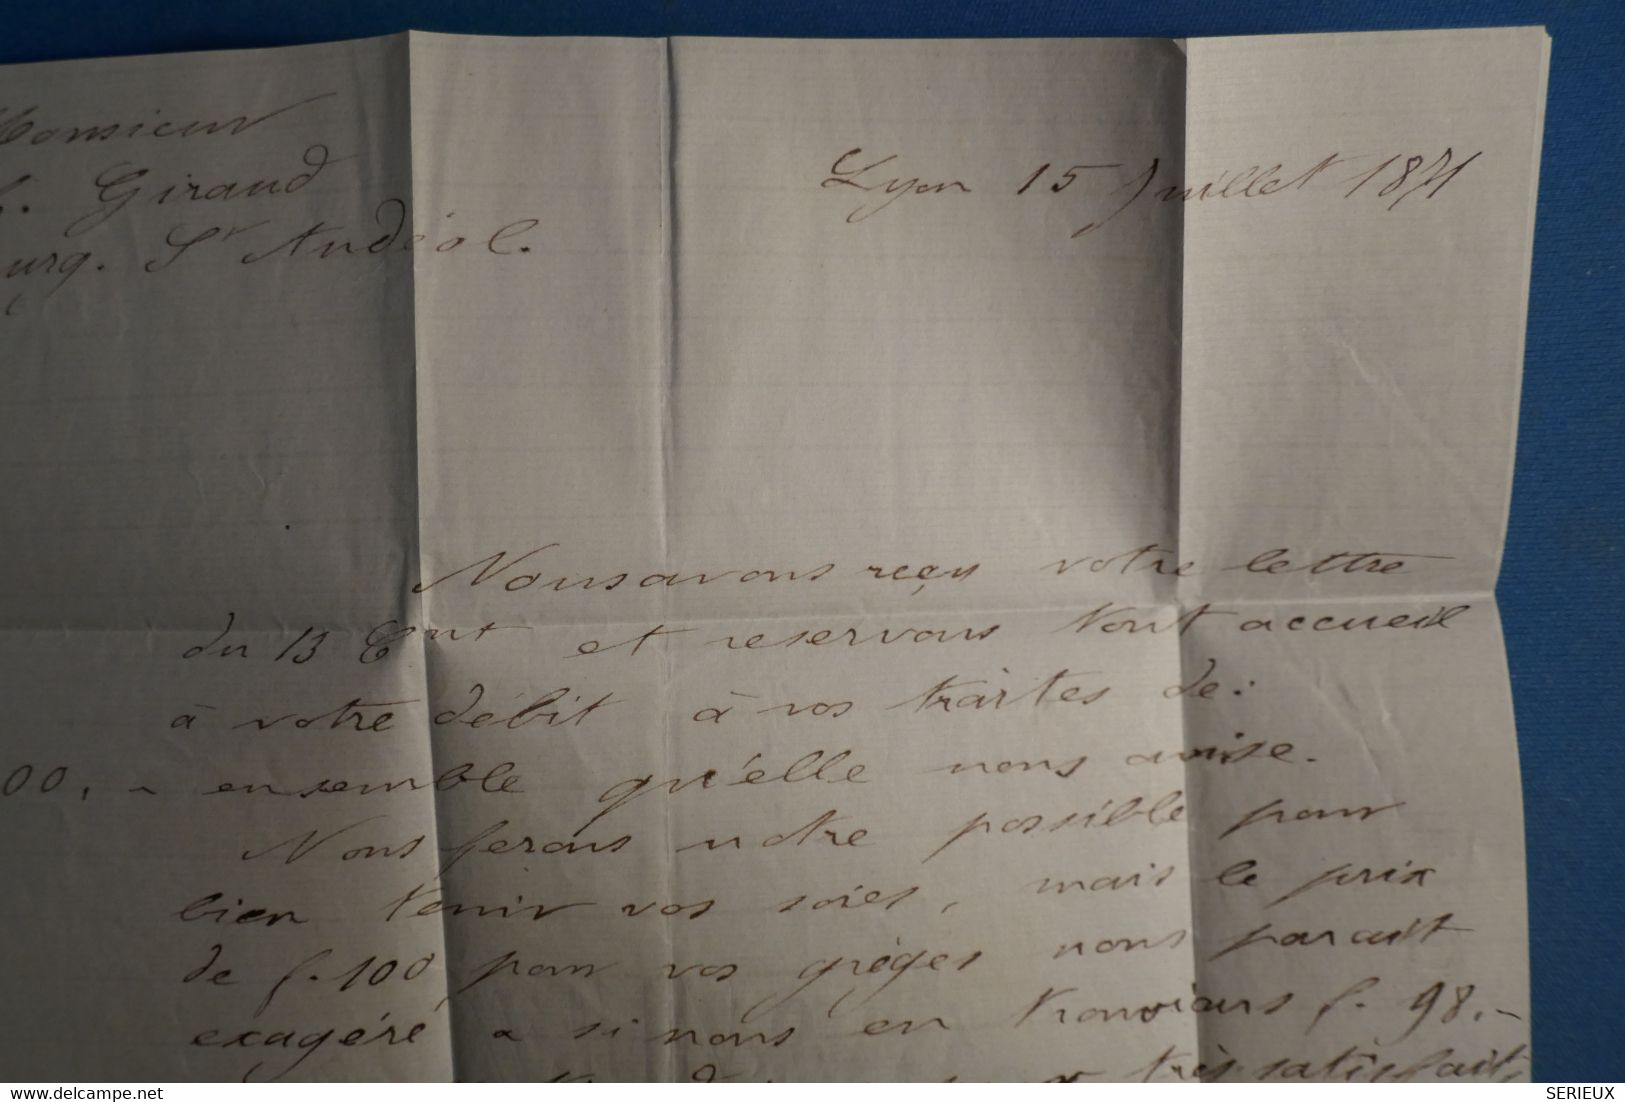 Monsieur
Giraud
Lyon 15 Juillet 1871
urg. St Andéol.
Nous avons reçu votre lettre
du 13 Ct et reservons tout accueil
à votre débit à vos traites de:
00, ensemble qu'elle nous avise.
Nous ferons notre possible pour
bien tenir vos soies, mais le prix
de f. 100 pour vos grèges nous parait
exagéré si nous en trouvions f. 98.-
très satisfaits
delcampe.net
SERIEUX